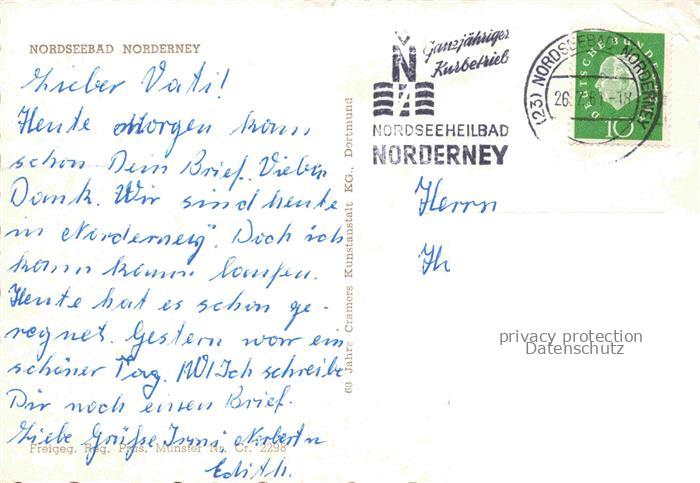 NORDSEEBAD NORDERNEY
Lieber Vati!
Heute Morgen kam
schon Dein Brief. Vielen
Dank. Wir sind heute
in „Norderney". Doch ich
kann kaum laufen.
Heute hat es schon ge-
regnet. Gestern war ein
schöner Tag. Ich schreibe
Dir noch einen Brief.
Liebe Grüße Irmi Norbert u
Edith.
Freigeg. Reg. Präs. Münster Nr. Cr. 2298
60 Jahre Cramers Kunstanstalt KG., Dortmund
Ganzjähriger
Kurbetrieb
N
NORDSEEHEILBAD
NORDERNEY
(23) NORDSEEBAD NORDERNEY
26. 7. 61 -18
DEUTSCHE BUND
10
Herrn
privacy protection
Datenschutz